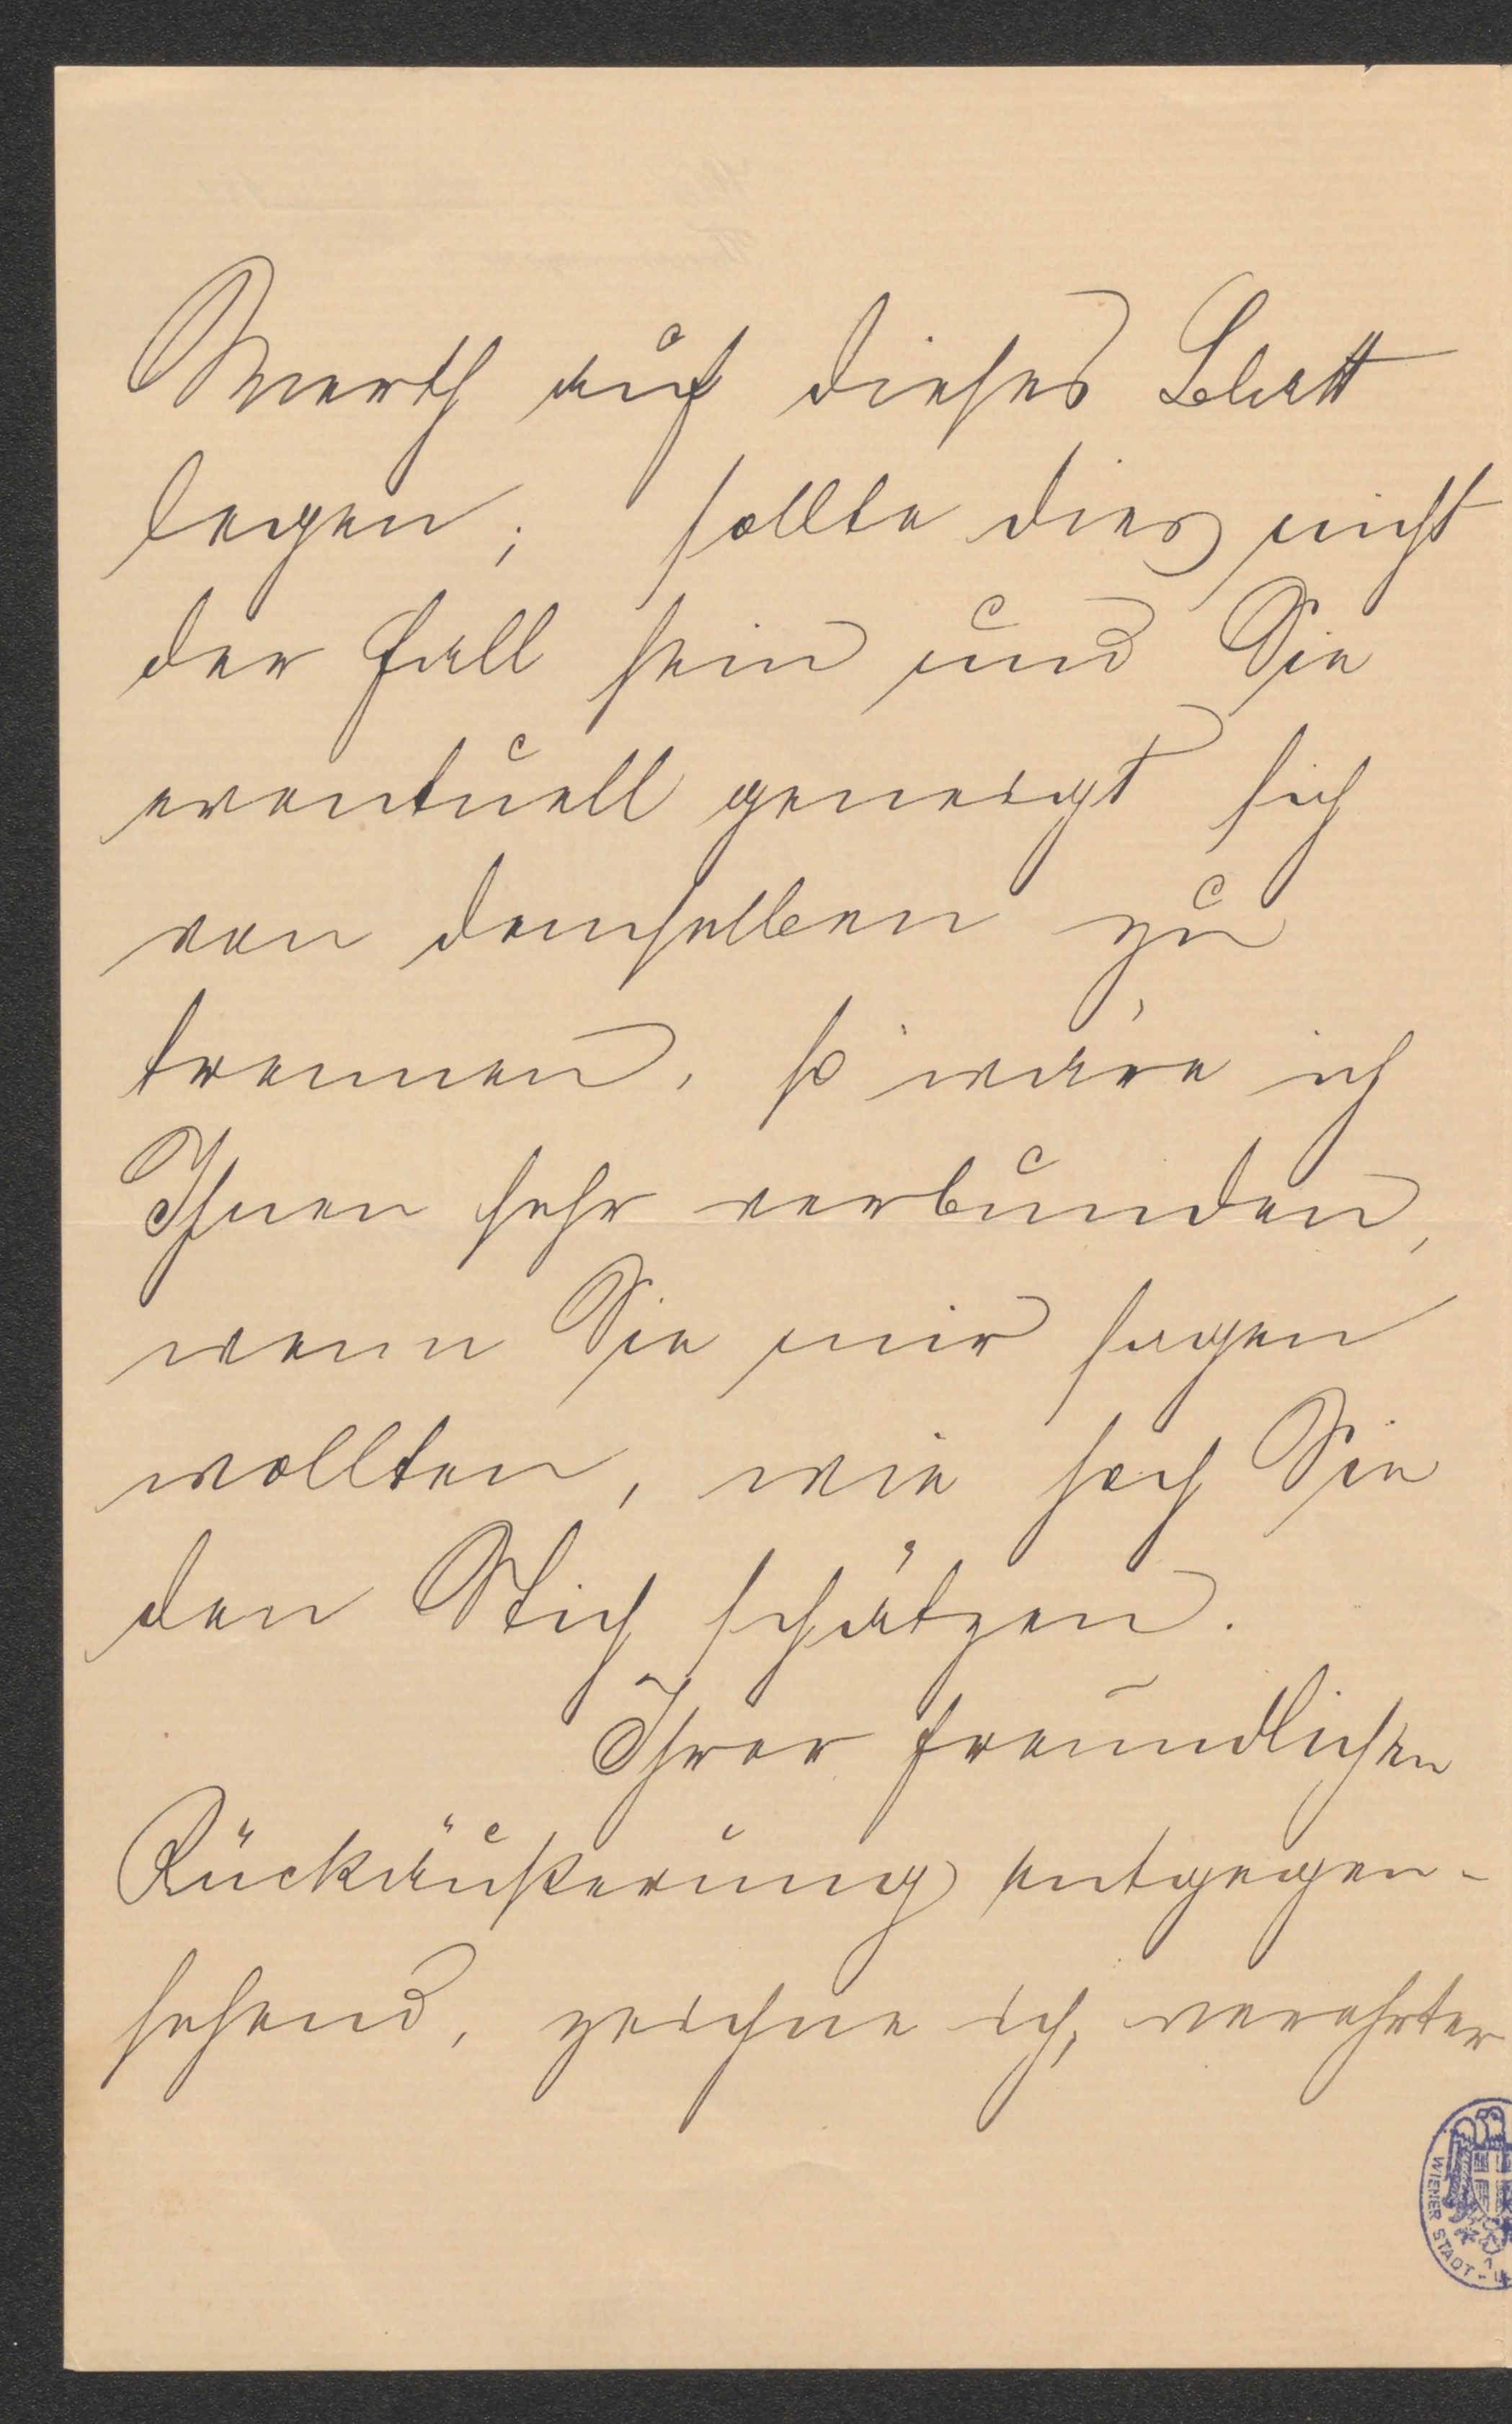 Werth auf dieses Blatt
legen; sollte dies nicht
der Fall sein und Sie
eventuell geneigt sich
von demselben zu
trennen, so wäre ich
Ihnen sehr verbunden,
wenn Sie mir sagen
wollten, wie hoch Sie
den Stich schätzen.
Ihrer freundlichen
Rückäußerung entgegen-
sehend, zeichne ich, verehrter
WIENER STADT-